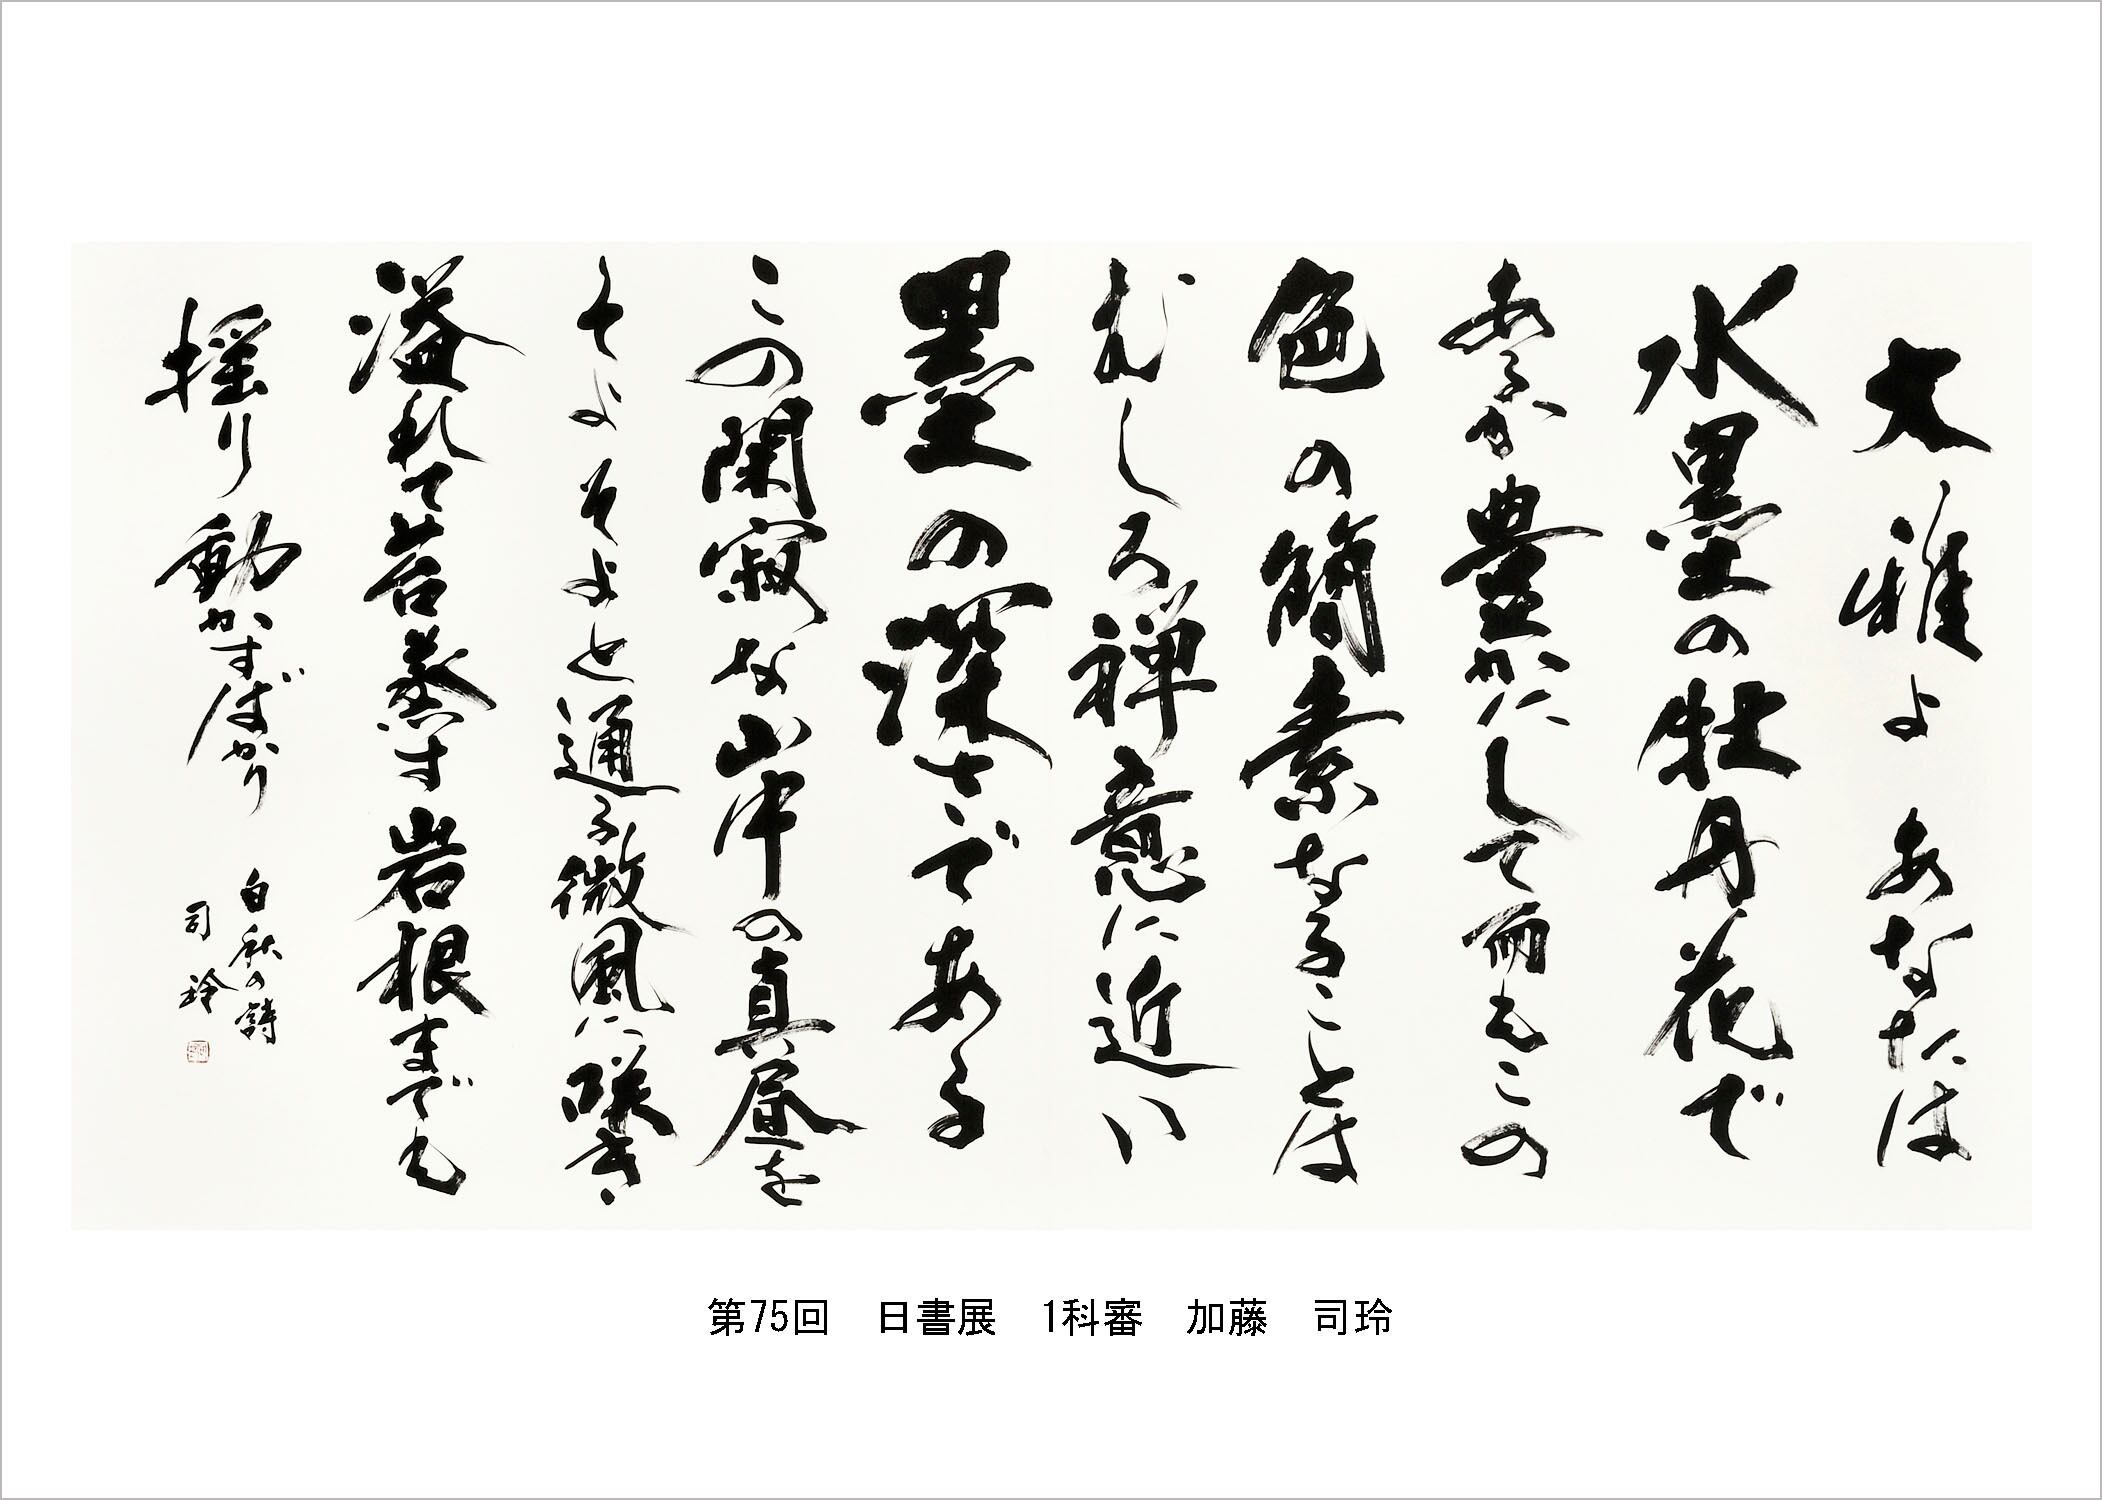 大雅よ あなたは
水墨の牡丹花で
あるが豊かにして而もこの
色の簡素なることは
むしろ禅意に近い
墨の深さである
この閑寂な山中の真昼を
そよそよと通る微風に咲き
溢れて苔蒸す岩根までも
揺り動かすばかり
白秋の詩
司玲
第75回　日書展　1科審　加藤　司玲